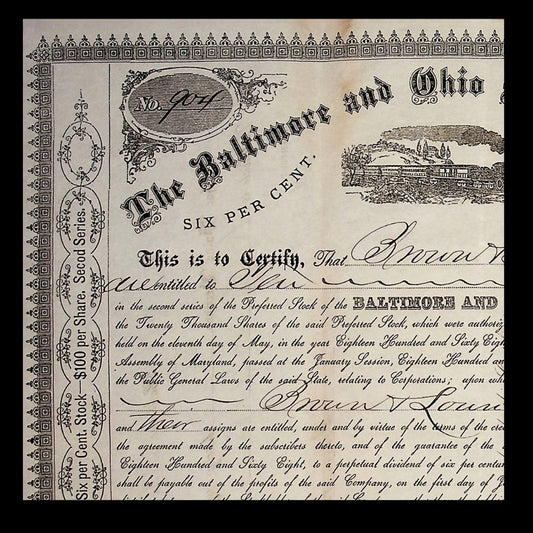 No. 904
The Baltimore and Ohio
SIX PER CENT.
This is to Certify, That Brown &
are entitled to Ten
in the second series of the Preferred Stock of the BALTIMORE AND
the Twenty Thousand Shares of the said Preferred Stock, which were authoriz
held on the eleventh day of May, in the year Eighteen Hundred and Sixty Eigh
Assembly of Maryland, passed at the January Session, Eighteen Hundred an
the Public General Laws of the said State, relating to Corporations; upon wh
Brown & Loun
and their assigns are entitled, under and by virtue of the terms of the
the agreement made by the subscribers thereto, and of the guarantee of the
Eighteen Hundred and Sixty Eight, to a perpetual dividend of six per centu
shall be payable out of the profits of the said Company, on the first day of
Six per Cent. Stock—$100 per Share. Secod Series.